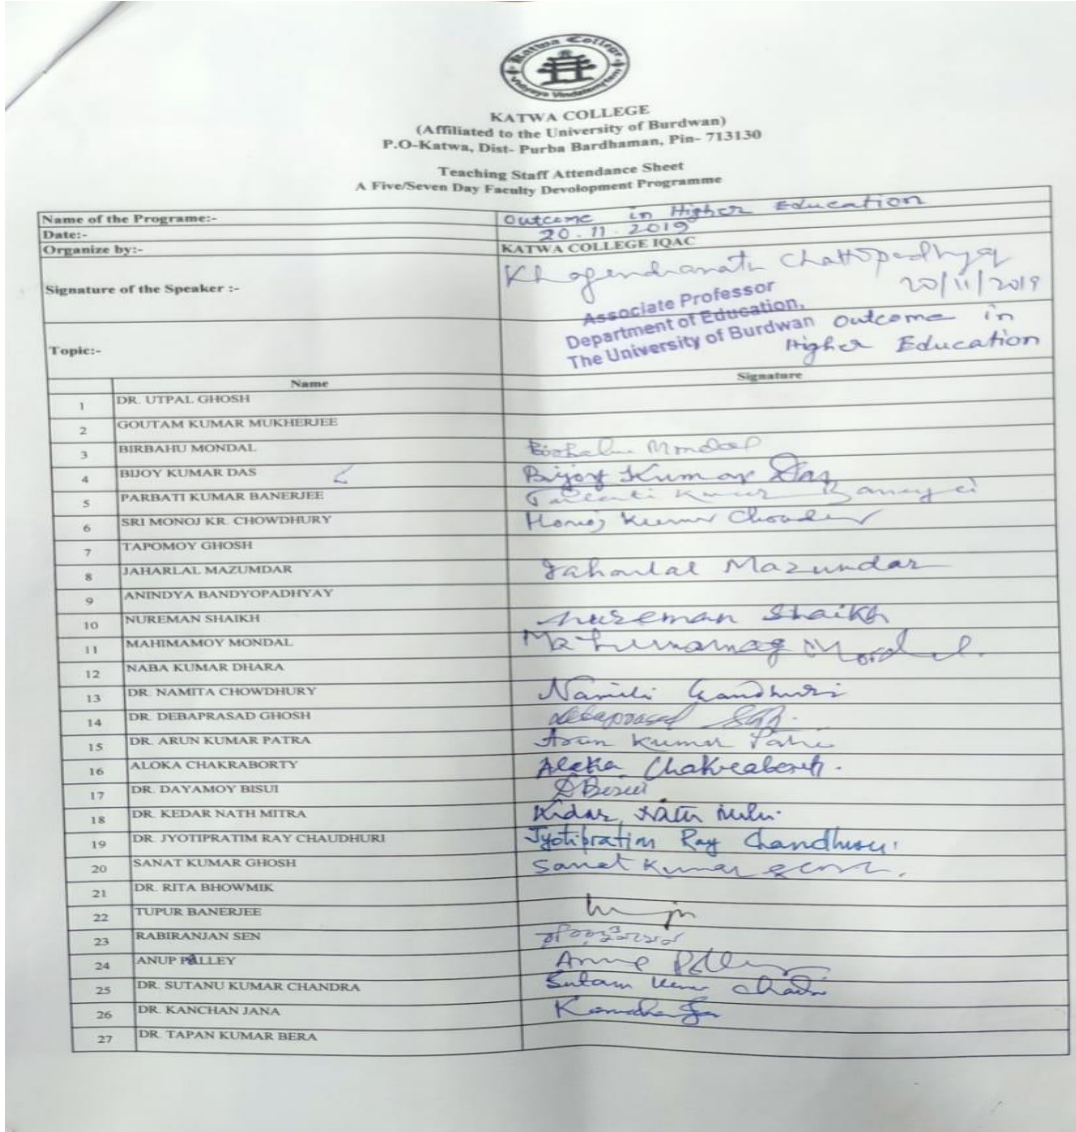 Katwa College
Vidyaya Vindatemritam
KATWA COLLEGE
(Affiliated to the University of Burdwan)
P.O-Katwa, Dist- Purba Bardhaman, Pin- 713130
Teaching Staff Attendance Sheet
A Five/Seven Day Faculty Devolopment Programme
Name of the Programe:- Outcome in Higher Education
Date:- 20.11.2019
Organize by:- KATWA COLLEGE IQAC
Signature of the Speaker :- Khagendranath Chattopadhyay
20/11/2019
Associate Professor
Department of Education,
The University of Burdwan
Topic:- Outcome in
Higher Education
Name Signature
1 DR. UTPAL GHOSH
2 GOUTAM KUMAR MUKHERJEE
3 BIRBAHU MONDAL Birbahu Mondal
4 BIJOY KUMAR DAS Bijoy Kumar Das
5 PARBATI KUMAR BANERJEE Parbati Kumar Banerjee
6 SRI MONOJ KR. CHOWDHURY Monoj Kumar
7 TAPOMOY GHOSH
8 JAHARLAL MAZUMDAR Jaharlal Mazumdar
9 ANINDYA BANDYOPADHYAY
10 NUREMAN SHAIKH Nureman Shaikh
11 MAHIMAMOY MONDAL Mahimamoy Mondal.
12 NABA KUMAR DHARA
13 DR. NAMITA CHOWDHURY
14 DR. DEBAPRASAD GHOSH Debaprasad
15 DR. ARUN KUMAR PATRA Arun Kumar Patra
16 ALOKA CHAKRABORTY Aloka Chakraborty.
17 DR. DAYAMOY BISUI DBisui
18 DR. KEDAR NATH MITRA Kedar Nath Mitra.
19 DR. JYOTIPRATIM RAY CHAUDHURI Jyotipratim Ray Chaudhuri.
20 SANAT KUMAR GHOSH Sanat Kumar Ghosh.
21 DR. RITA BHOWMIK
22 TUPUR BANERJEE
23 RABIRANJAN SEN
24 ANUP PALLEY Anup Palley
25 DR. SUTANU KUMAR CHANDRA Sutanu Kumar Chandra
26 DR. KANCHAN JANA Kanchan Jana
27 DR. TAPAN KUMAR BERA